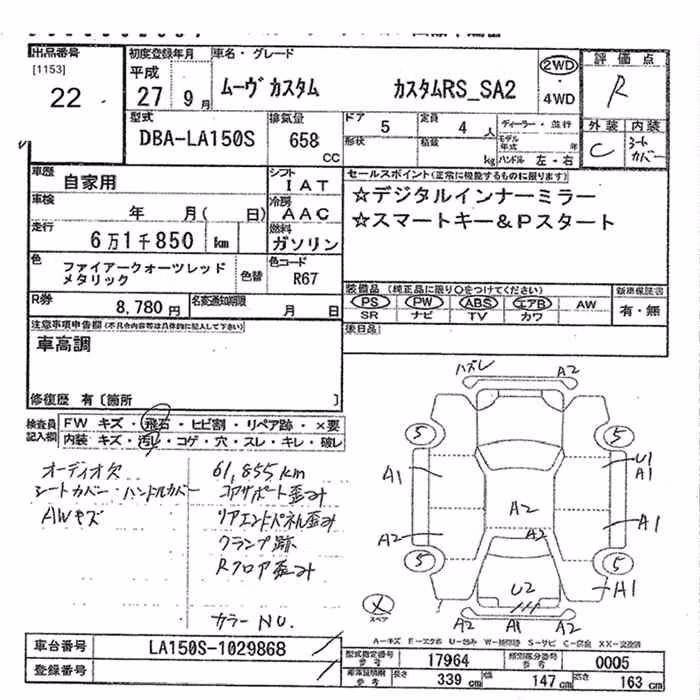 出品番号 初度登録年月 車名・グレード 2WD 評価点
[1153] 平成
22 27 9月 ムーヴ カスタム カスタムRS_SA2 4WD R
型式 排気量 ドア 5 定員 4 人 ディーラー・並行 外装 内装
DBA-LA150S 658 CC 形状 積載 kg モデル年式 年 ハンドル 左・右 C シートカバー
車歴 自家用 シフト IAT セールスポイント(正常に機能するものに限ります)
車検 年 月( 日) 冷房 AAC ☆デジタルインナーミラー
走行 6万1千850 km 燃料 ガソリン ☆スマートキー&Pスタート
色 ファイアークォーツレッド 色替 色コード R67
メタリック
装備品(純正品に限り○をつけてください) 新車保証書
R券 8,780円 名変通知期限 月 日 PS PW ABS エアB AW 有・無
SR ナビ TV カワ
注意事項申告欄(不具合内容等は具体的に記入して下さい) 後日品
車高調
修復歴 有〔箇所 〕
検査員 FW キズ・飛石・ヒビ割・リペア跡・×要
記入欄 内装 キズ・汚レ・コゲ・穴・スレ・キレ・破レ
ハズレ A2
5 5
オーディオ欠 61,855km
シートカバー・ハンドルカバー コアサポート歪み
AWキズ リアエンドパネル歪み
クランプ跡
Rフロア歪み
カラーNO.
A1 U1
A1
A2 A1
A2 A2
5 5
U2 A1
スペア A2 A1 A2
A−キズ E−エクボ U−凹み W−補修跡 S−サビ C−腐食 XX−交換済
車台番号 LA150S-1029868
登録番号
型式指定番号 参考 17964 類別区分番号 参考 0005
車庫証明用 参考 長さ 339 cm 幅 147 cm 高さ 163 cm